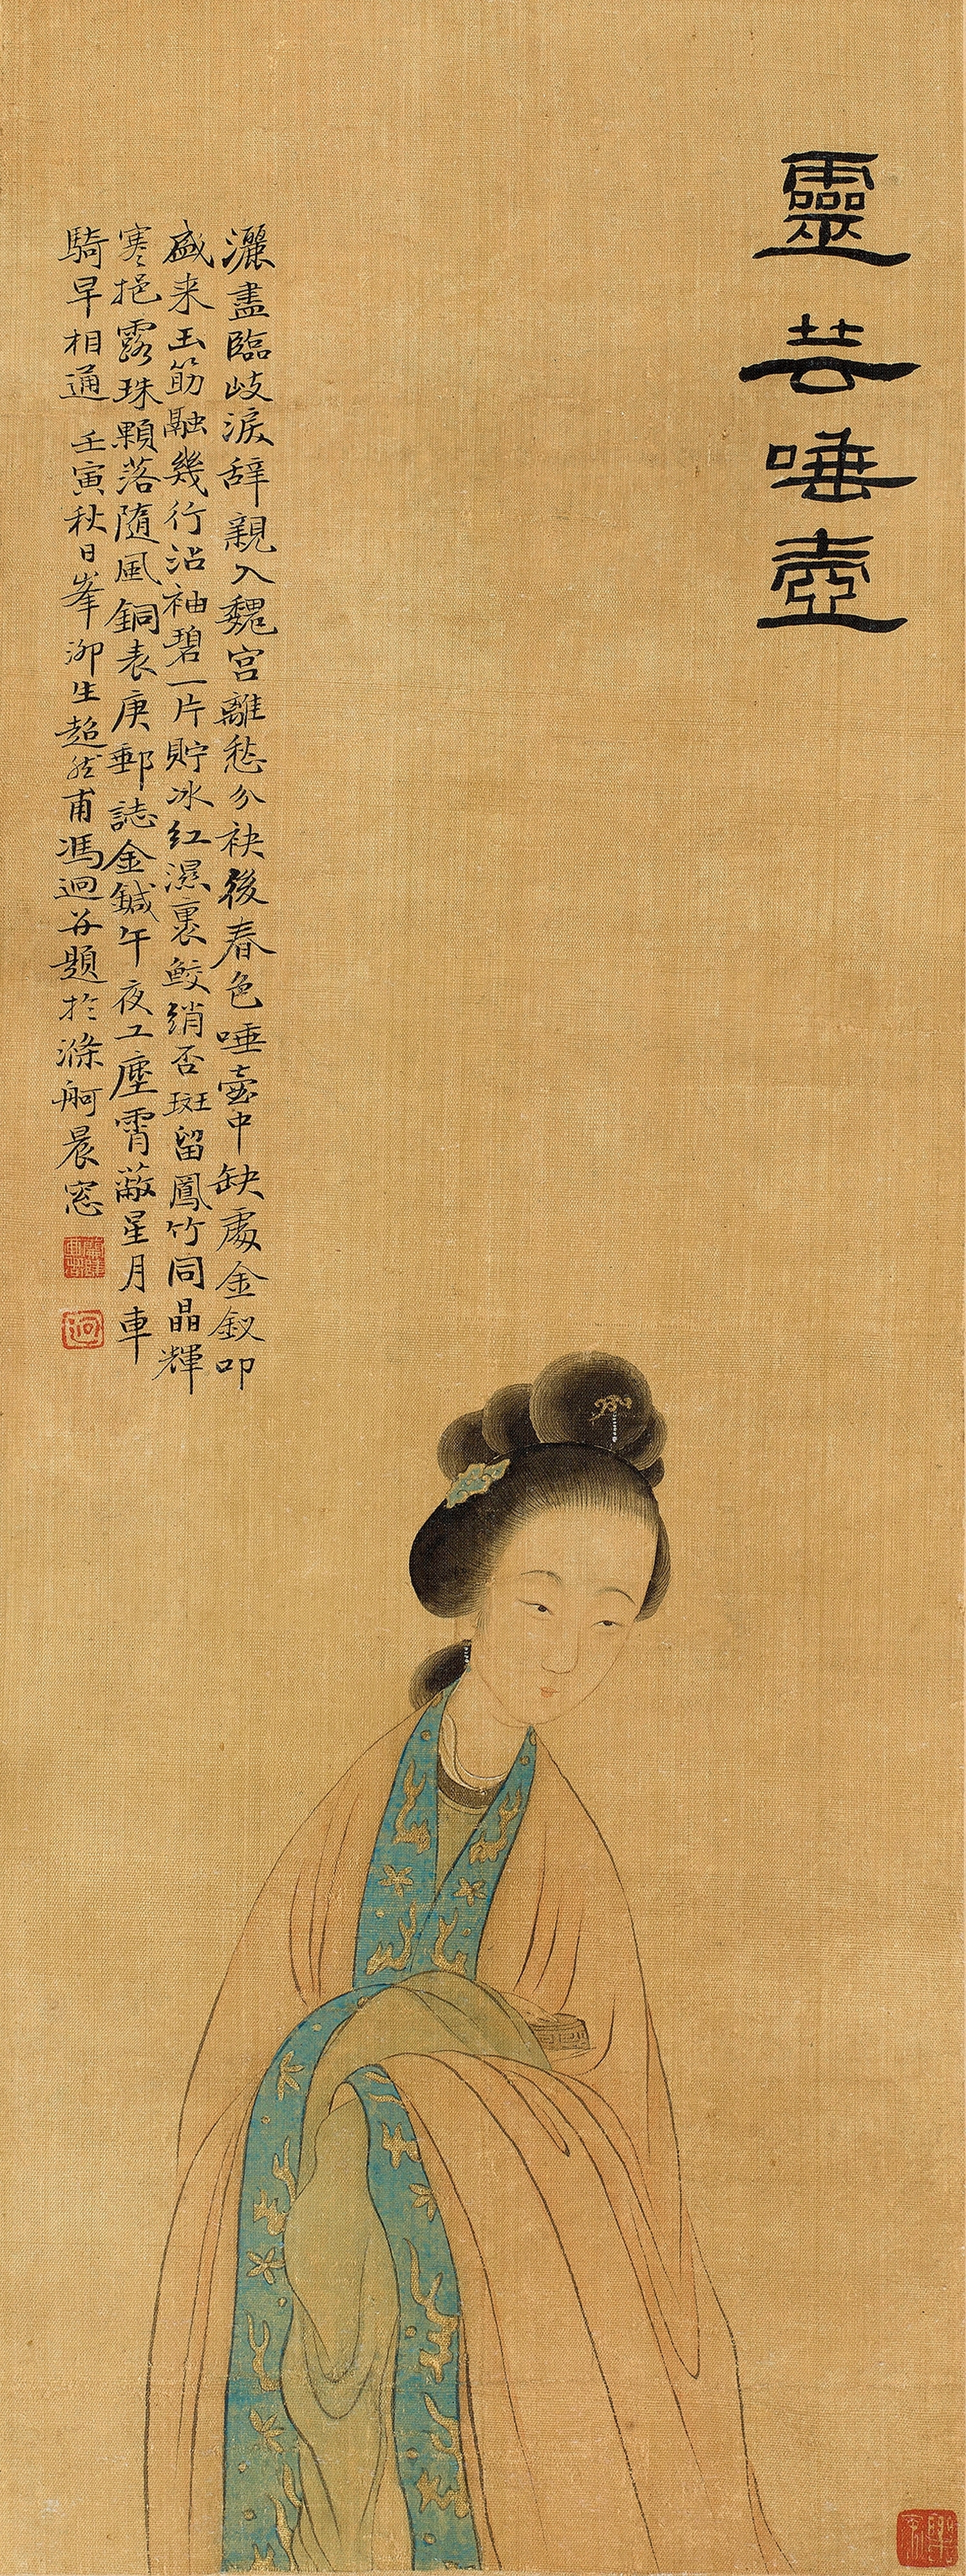 靈芸唾壺
灑盡臨歧淚辞親入魏宮離愁分袂後春色唾壺中缺處金釵叩
盛来玉筯融幾行沾袖碧一片貯冰紅濕裹鮫綃否斑留鳳竹同晶輝
寒挹露珠顆落隨風銅表庚郵誌金鍼午夜工塵霄蔽星月車
騎早相通 壬寅秋日峯泖生超然甫馮迥并題於滌舸晨窓
迥